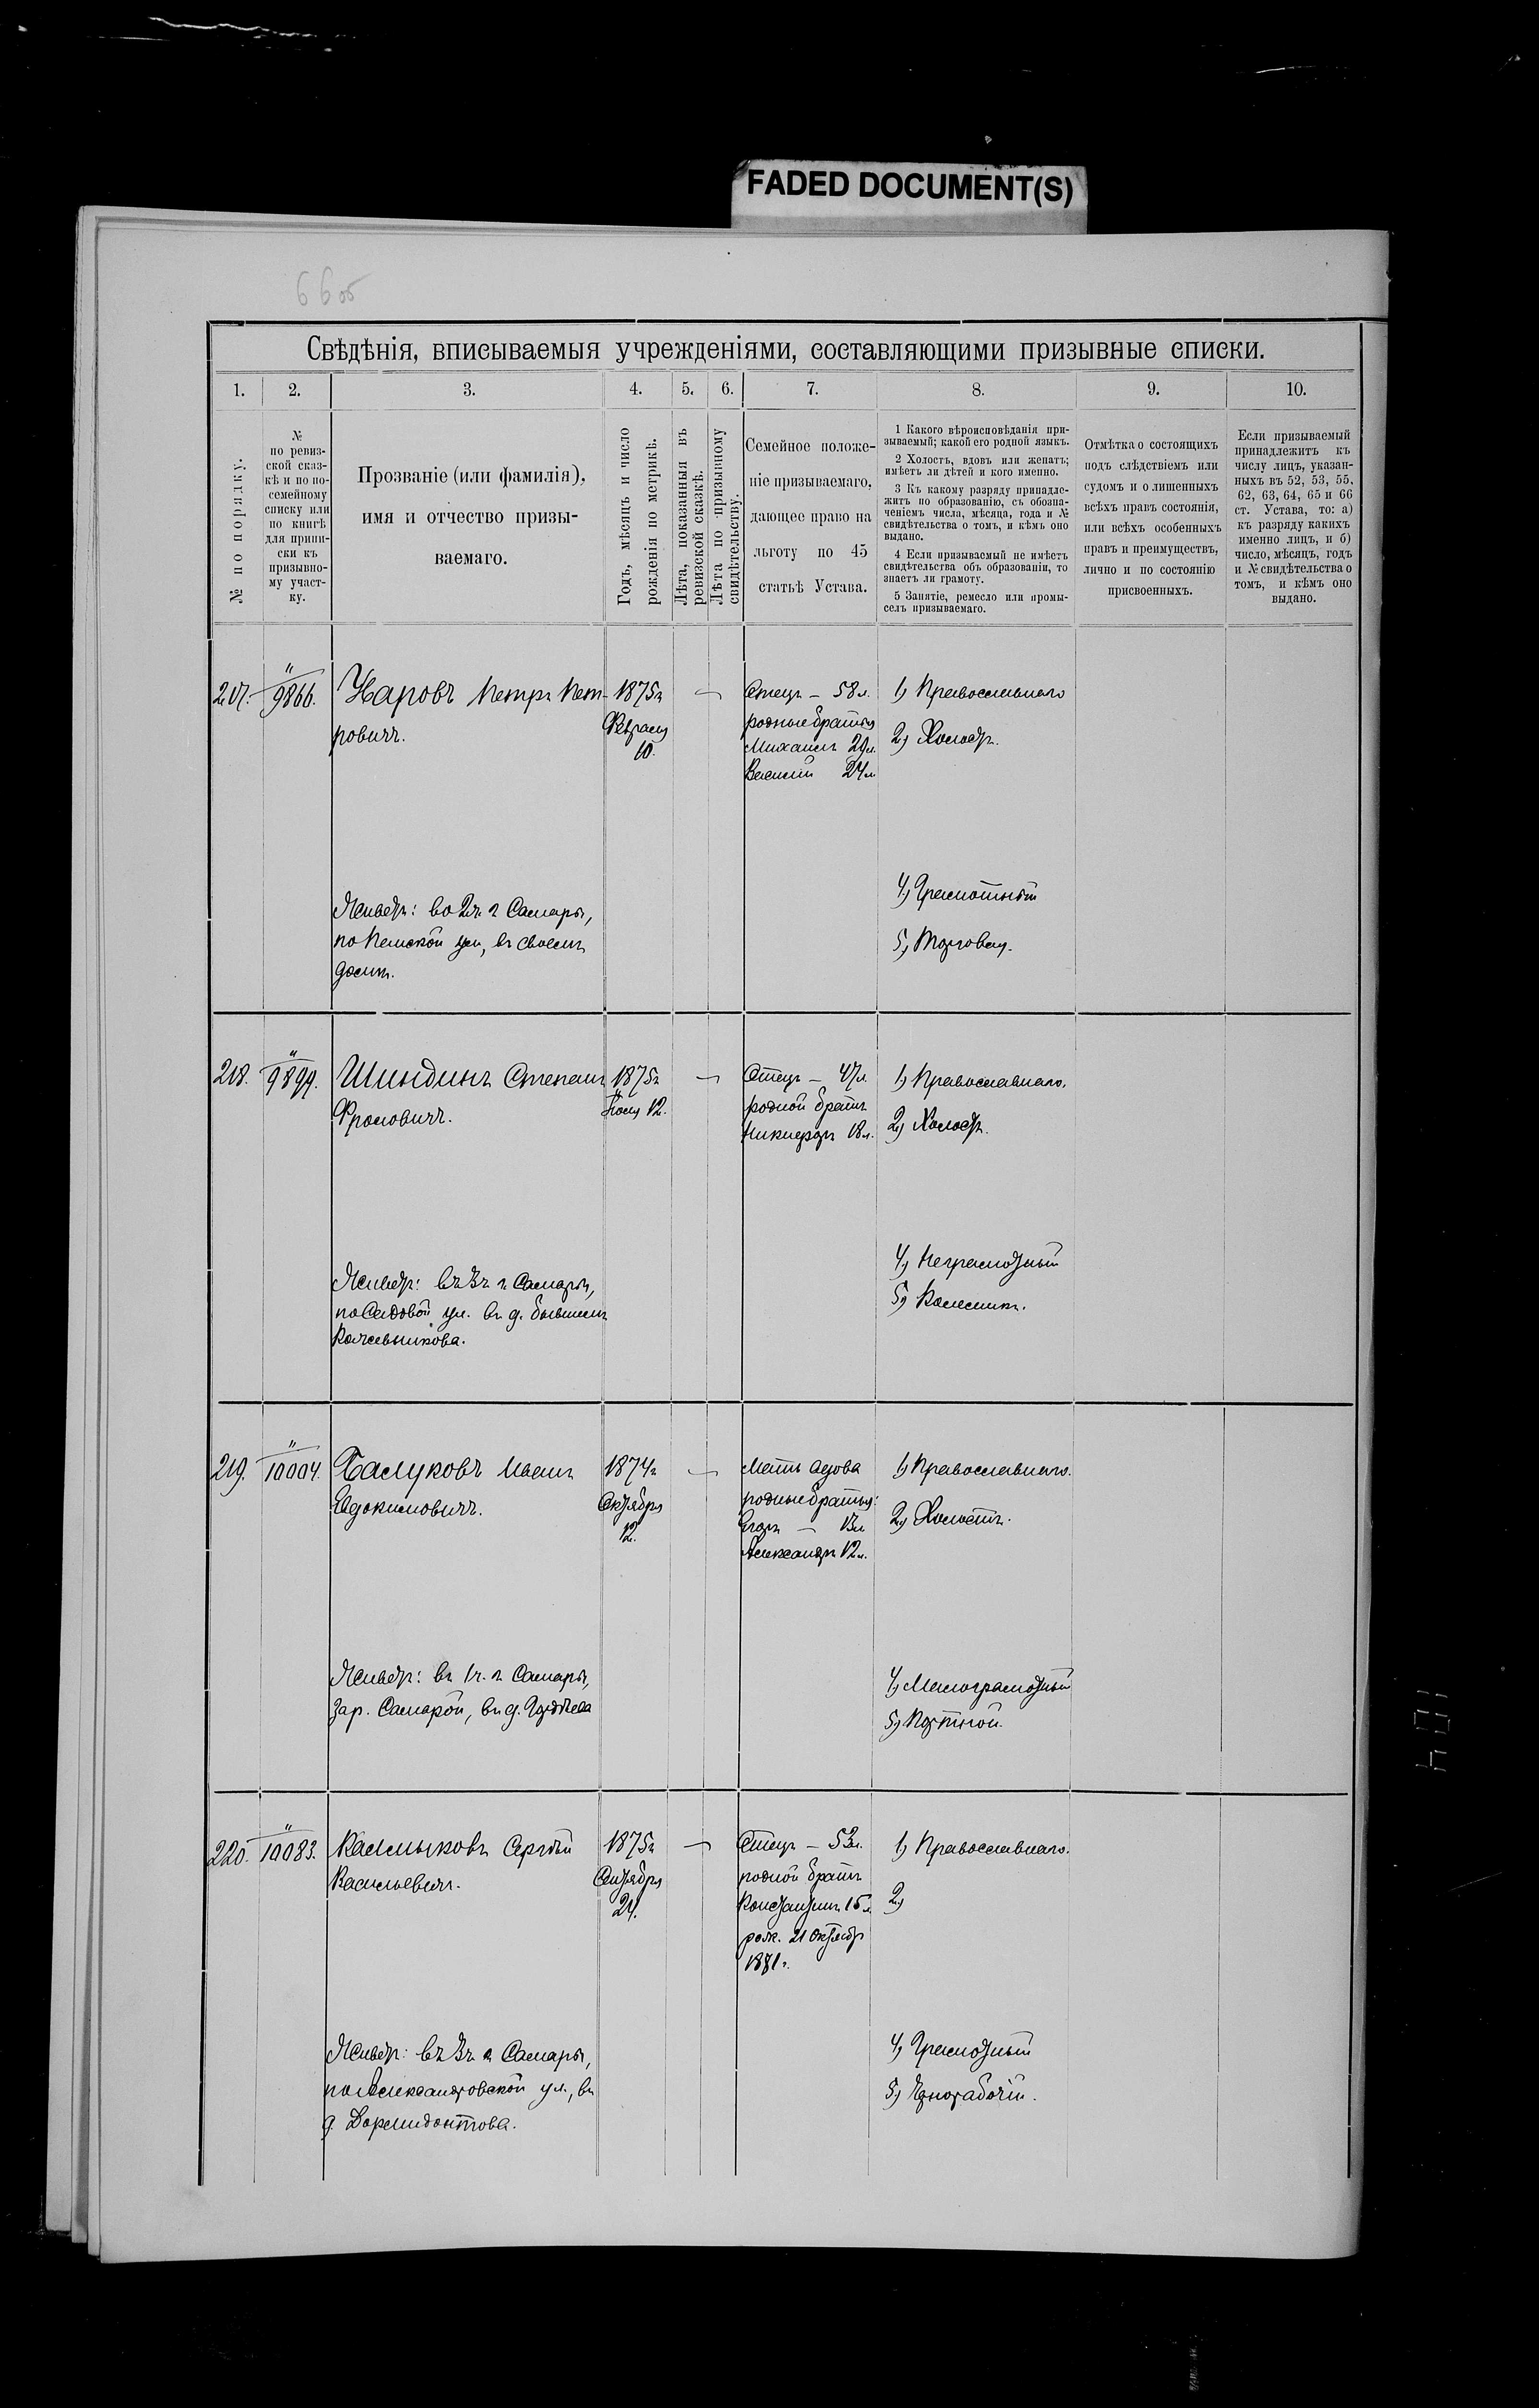 FADED DOCUMENT(S)
66 об
Свѣдѣнія, вписываемыя учрежденіями, составляющими призывные списки.
1. 2. 3. 4. 5. 6. 7. 8. 9. 10.
№ по порядку.
№
по ревиз-
ской сказ-
кѣ и по по-
семейному
списку или
по книгѣ
для припи-
ски къ
призывно-
му участ-
ку.
Прозваніе (или фамилія),
имя и отчество призы-
ваемаго.
Годъ, мѣсяцъ и число
рожденія по метрикѣ.
Лѣта, показанныя въ
ревизской сказкѣ.
Лѣта по призывному
свидѣтельству.
Семейное положе-
ніе призываемаго,
дающее право на
льготу по 45
статьѣ Устава.
1 Какого вѣроисповѣданія при-
зываемый; какой его родной языкъ.
2 Холостъ, вдовъ или женатъ;
имѣетъ ли дѣтей и кого именно.
3 Къ какому разряду принадле-
житъ по образованію, съ обозна-
ченіемъ числа, мѣсяца, года и №
свидѣтельства о томъ, и кѣмъ оно
выдано.
4 Если призываемый не имѣетъ
свидѣтельства объ образованіи, то
знаетъ ли грамоту.
5 Занятіе, ремесло или промы-
селъ призываемаго.
Отмѣтка о состоящихъ
подъ слѣдствіемъ или
судомъ и о лишенныхъ
всѣхъ правъ состоянія,
или всѣхъ особенныхъ
правъ и преимуществъ,
лично и по состоянію
присвоенныхъ.
Если призываемый
принадлежитъ къ
числу лицъ, указан-
ныхъ въ 52, 53, 55,
62, 63, 64, 65 и 66
ст. Устава, то: а)
къ разряду какихъ
именно лицъ, и б)
число, мѣсяцъ, годъ
и № свидѣтельства о
томъ, и кѣмъ оно
выдано.
217.
"
9866.
Уваровъ Петръ Пет-
ровичъ.
1875г
Февраля
10.
—
Отецъ — 58л.
родные братья
Михаилъ 29л.
Василій 24л
1) Православнаго
2) Холостъ.
Живетъ: во 2ч. г Самары,
по ул, въ своемъ
домѣ.
4) Грамотный
5) Торговля.
218.
"
9899.
Шиндинъ Степанъ
Фроловичъ.
1875г
Іюля 12.
—
Отецъ — 47л.
родной братъ
Никифоръ 18л.
1) Православнаго.
2) Холостъ.
Живетъ: въ 3ч г Самары,
по Садовой ул. въ д. бывшемъ
Кожевникова.
4) Неграмотный
5) Колесникъ.
219.
"
10004.
Балуковъ Иванъ
Евдокимовичъ.
1874г
Октября
12.
—
Мать вдова
родные братья:
Егоръ — 13л
Александръ 12л.
1) Православнаго.
2) Холостъ.
Живетъ: въ 1ч. г Самары,
за р. Самарой, въ д.
4) Малограмотный
5) Портной.
220.
"
10083.
Калмыковъ Сергѣй
Васильевичъ.
1875г
Сентября
24.
—
Отецъ — 53л.
родной братъ
Константинъ 15л
рож. 21 Октября
1881г.
1) Православнаго.
2)
Живетъ: въ 3ч г Самары,
по Александровской ул., въ
д. Дормидонтова.
4) Грамотный
5) Чернорабочій.
104